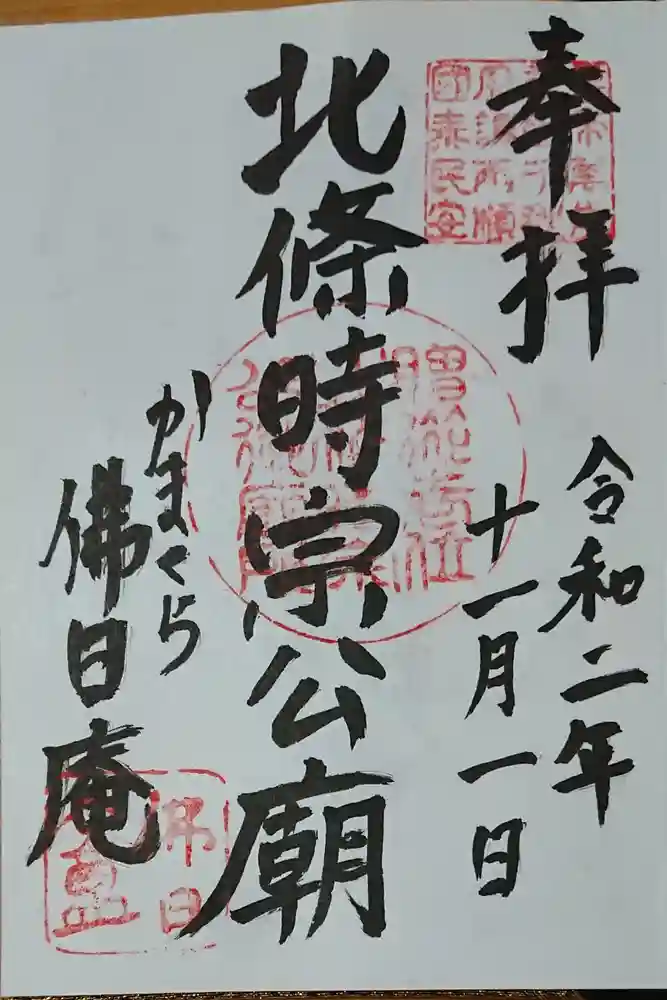 奉拝
令和二年
十一月一日
北條時宗公廟
かまくら
佛日庵
國泰民安